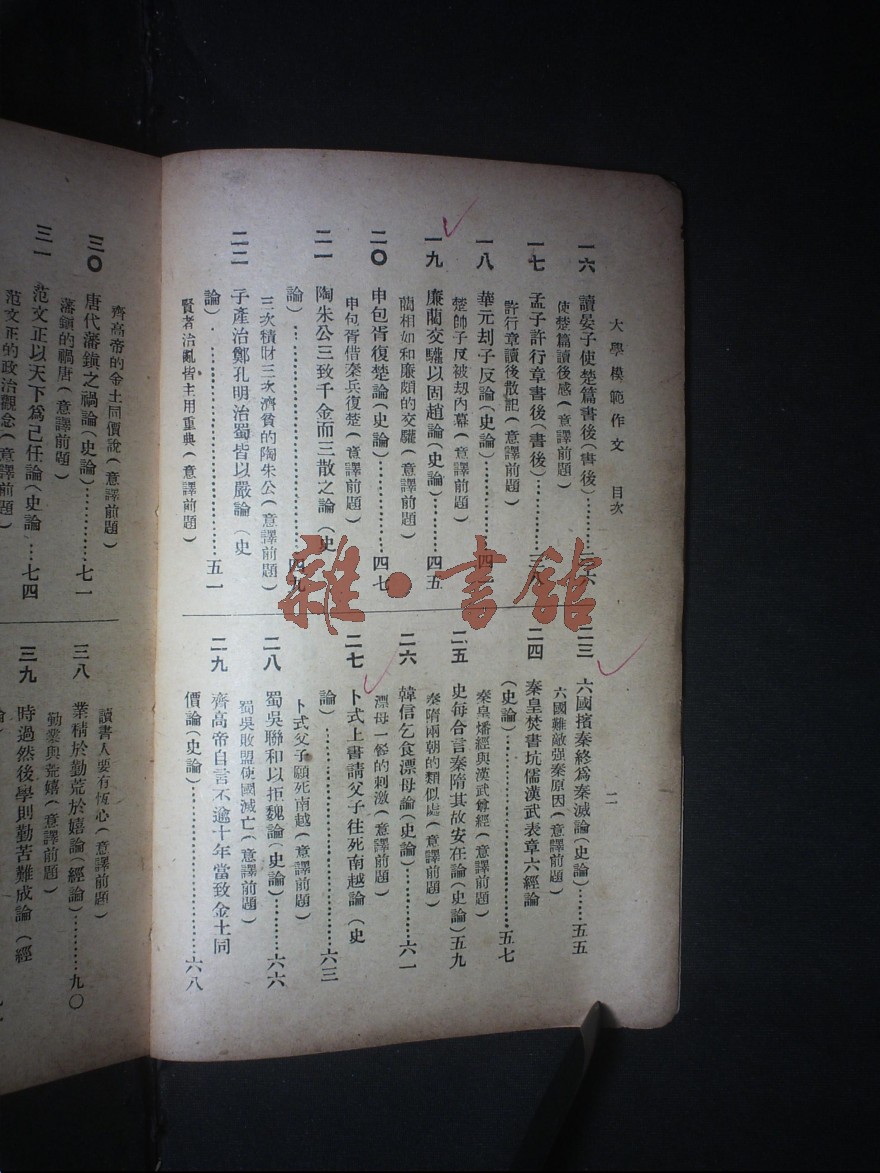 大學模範作文 目次
二
一六 讀晏子使楚篇書後(書後)
使楚篇讀後感(意譯前題)
一七 孟子許行章書後(書後)
許行章讀後散記(意譯前題)
一八 華元刦子反論(史論)
楚帥子反被刧內幕(意譯前題)
一九 廉藺交驩以固趙論(史論)……四五
藺相如和廉頗的交驩(意譯前題)
二〇 申包胥復楚論(史論)……四七
申包胥借秦兵復楚(意譯前題)
二一 陶朱公三致千金而三散之論(史
論)……四九
三次積財三次濟貧的陶朱公(意譯前題)
二二 子產治鄭孔明治蜀皆以嚴論(史
論)……五一
賢者治亂皆主用重典(意譯前題)
二三 六國擯秦終爲秦滅論(史論)……五五
六國難敵强秦原因(意譯前題)
二四 秦皇焚書坑儒漢武表章六經論
(史論)……五七
秦皇燔經與漢武尊經(意譯前題)
二五 史每合言秦隋其故安在論(史論)五九
秦隋兩朝的類似處(意譯前題)
二六 韓信乞食漂母論(史論)……六一
漂母一餐的刺激(意譯前題)
二七 卜式上書請父子往死南越論(史
論)……六三
卜式父子願死南越(意譯前題)
二八 蜀吳聯和以拒魏論(史論)……六六
蜀吳敗盟使國滅亡(意譯前題)
二九 齊高帝自言不逾十年當致金土同
價論(史論)……六八
齊高帝的金土同價說(意譯前題)
三〇 唐代藩鎭之禍論(史論)……七一
藩鎭的禍唐(意譯前題)
三一 范文正以天下爲己任論(史論)…七四
范文正的政治觀念(意譯前題)
讀書人要有恆心(意譯前題)
三八 業精於勤荒於嬉論(經論)……九〇
勤業與荒嬉(意譯前題)
三九 時過然後學則勤苦難成論(經
雜·書館